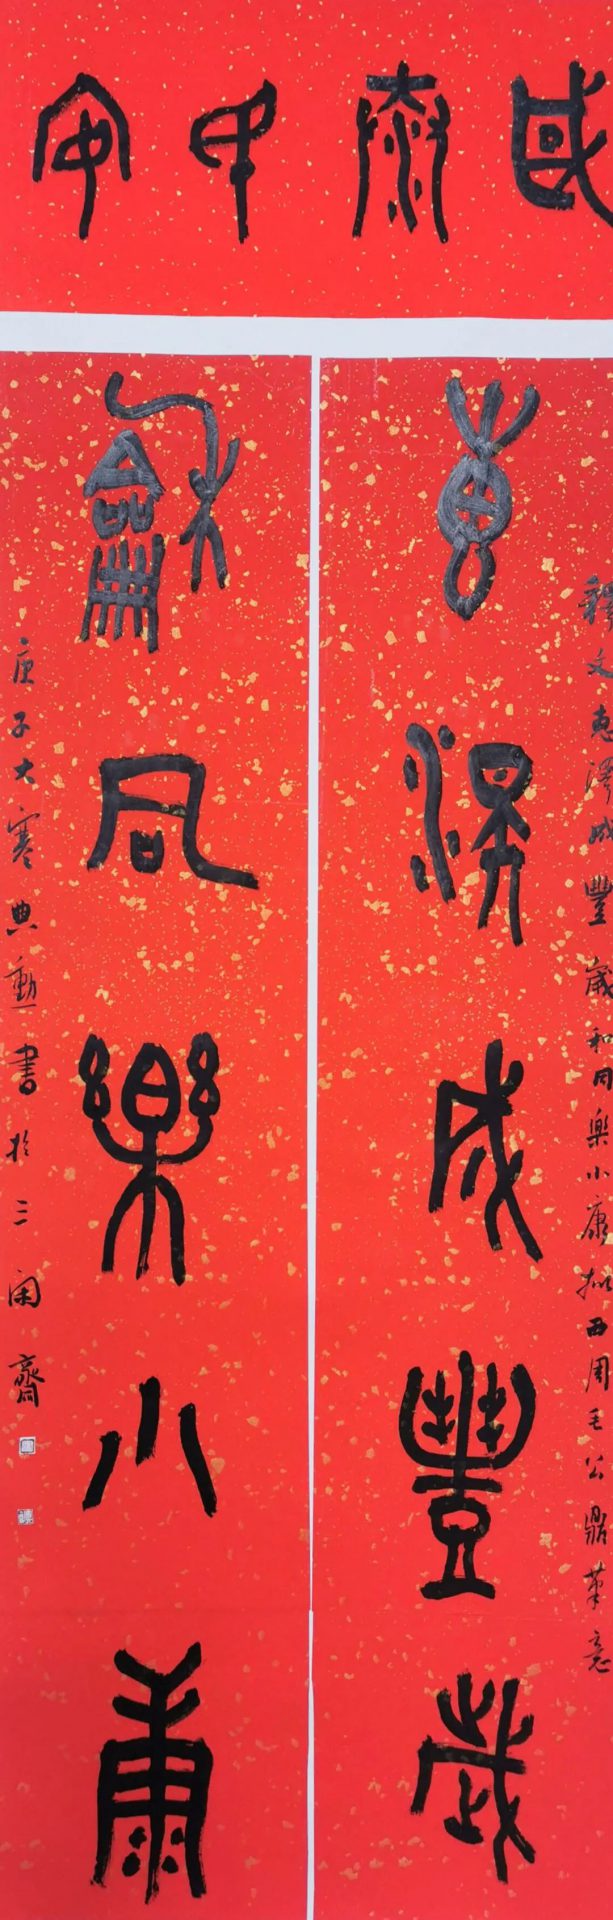 國泰民安
惠澤成豐歲
釋文惠澤成豐歲和同樂小康拟西周毛公鼎筆意
龢同樂小康
庚子大寒典勳書於三閑齋